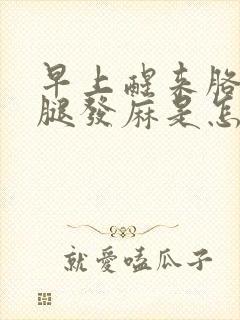 早上醒来胳
腿發麻是怎
就愛嗑瓜子